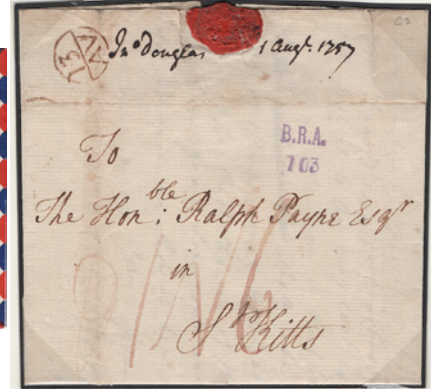 13 AV
Jno Douglas 1 Augt. 1757
B.R.A.
703
To
The Honble: Ralph Payne Esqr
in
St Kitts